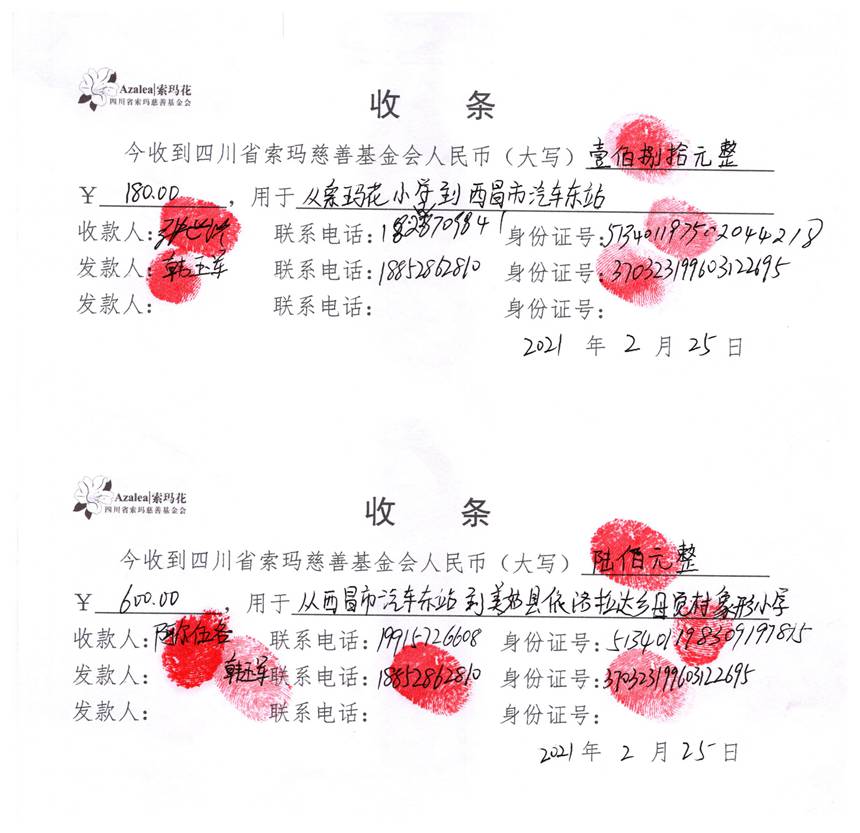 Azalea|索玛花
四川省索玛慈善基金会
收 条
今收到四川省索玛慈善基金会人民币（大写）壹佰捌拾元整
¥ 180.00 ，用于 从索玛花小学到西昌市汽车东站
收款人： 联系电话： 身份证号：
发款人：韩玉军 联系电话：18852862810 身份证号：370323199603122695
发款人： 联系电话： 身份证号：
2021 年 2 月 25 日
Azalea|索玛花
四川省索玛慈善基金会
收 条
今收到四川省索玛慈善基金会人民币（大写）陆佰元整
¥ 600.00 ，用于 从西昌市汽车东站到美姑县依洛拉达乡母觉村象形小学
收款人： 联系电话：19915726608 身份证号：513401198309197815
发款人：韩玉军 联系电话：18852862810 身份证号：370323199603122695
发款人： 联系电话： 身份证号：
2021 年 2 月 25 日